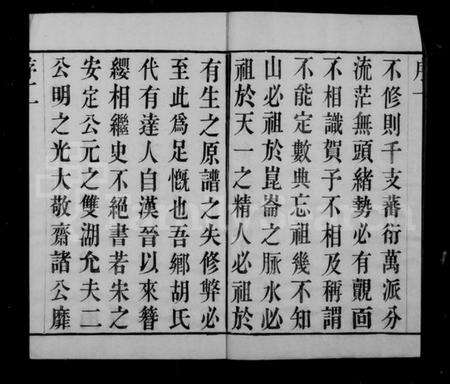 不修則千支蕃衍萬派分
流茫無頭緒勢必有覿面
不相識賀予不相及稱謂
不能定數典忘祖幾不知
山必祖於崑崙之脈水必
祖於天一之精人必祖於
有生之原譜之失修弊必
至此爲足慨也吾鄉胡氏
代有達人自漢晉以來簪
纓相繼史不絕書若朱之
安定公元之雙湖允夫二
公明之光大敬齋諸公靡
序二